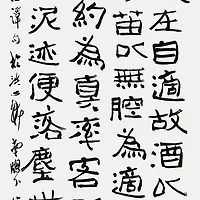 在自適故酒以
笛以無腔為適
約為真率客
泥迹便落塵世
譚句